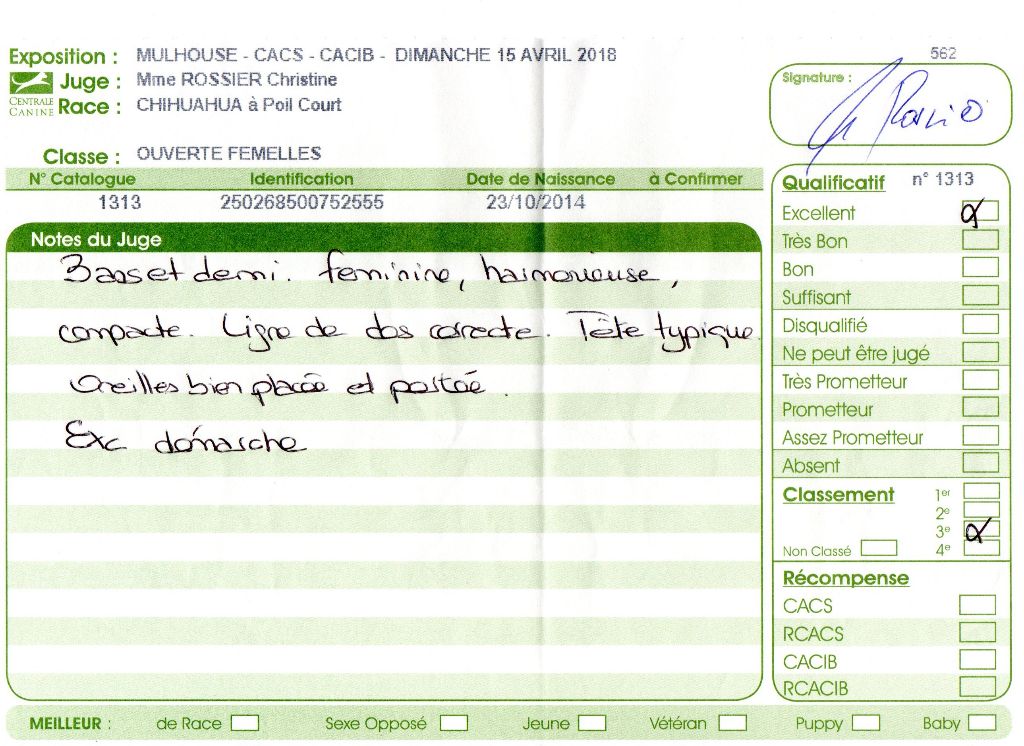 562
Exposition : MULHOUSE - CACS - CACIB - DIMANCHE 15 AVRIL 2018
Juge : Mme ROSSIER Christine
CENTRALE CANINE
Race : CHIHUAHUA à Poil Court
Signature :
Classe : OUVERTE FEMELLES
N° Catalogue Identification Date de Naissance à Confirmer
1313 250268500752555 23/10/2014
Notes du Juge
3 ans et demi. feminine, harmonieuse,
compacte. Ligne de dos correcte. Tête typique.
Oreilles bien placée et portée.
Exc démarche
Qualificatif n° 1313
Excellent
Très Bon
Bon
Suffisant
Disqualifié
Ne peut être jugé
Très Prometteur
Prometteur
Assez Prometteur
Absent
Classement 1er
2e
3e
Non Classé 4e
Récompense
CACS
RCACS
CACIB
RCACIB
MEILLEUR : de Race Sexe Opposé Jeune Vétéran Puppy Baby